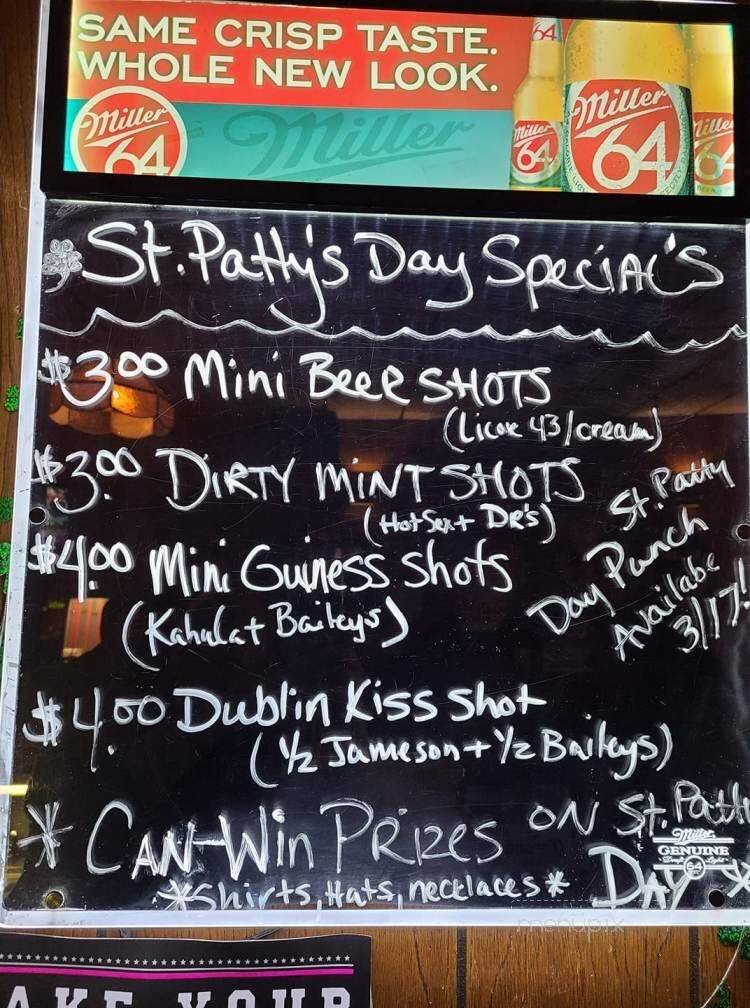 SAME CRISP TASTE.
WHOLE NEW LOOK.
Miller 64
Miller
64
Miller 64
Miller 64
Miller 64
St. Patty's Day Specials
$3.00 Mini Beer SHOTS
(Licor 43/cream)
$3.00 DIRTY MINT SHOTS
(Hot Sex + DR's)
$4.00 Mini Guiness Shots
(Kahula + Baileys)
St. Patty
Day Punch
Availabe
3/17th
$4.00 Dublin Kiss Shot
(1/2 Jameson + 1/2 Baileys)
* CAN-Win PRIZES ON St. Patt
DAY *
*Shirts, Hats, necklaces*
Miller
GENUINE
Draft Light
64
menupix
AKE YOUR